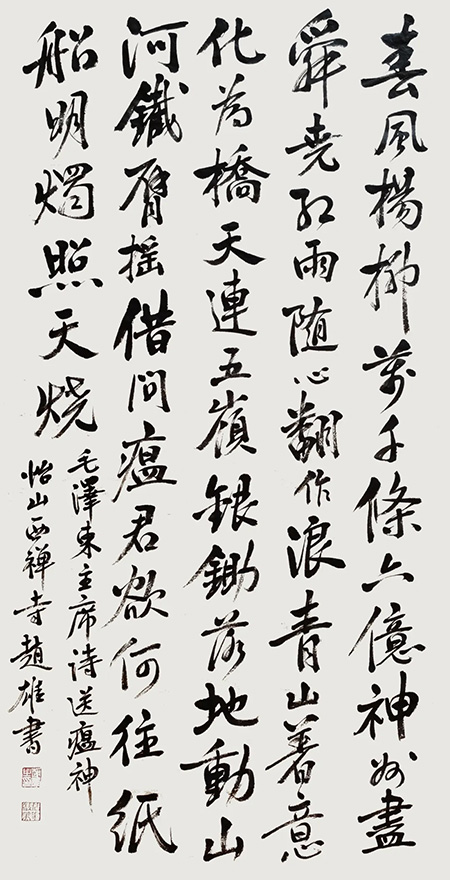 春風楊柳萬千條六億神州盡
舜堯紅雨随心翻作浪青山著意
化為橋天連五嶺銀鋤落地動山
河鐵臂摇借問瘟君欲何往紙
船明燭照天燒
毛澤東主席詩送瘟神
怡山西禅寺趙雄書